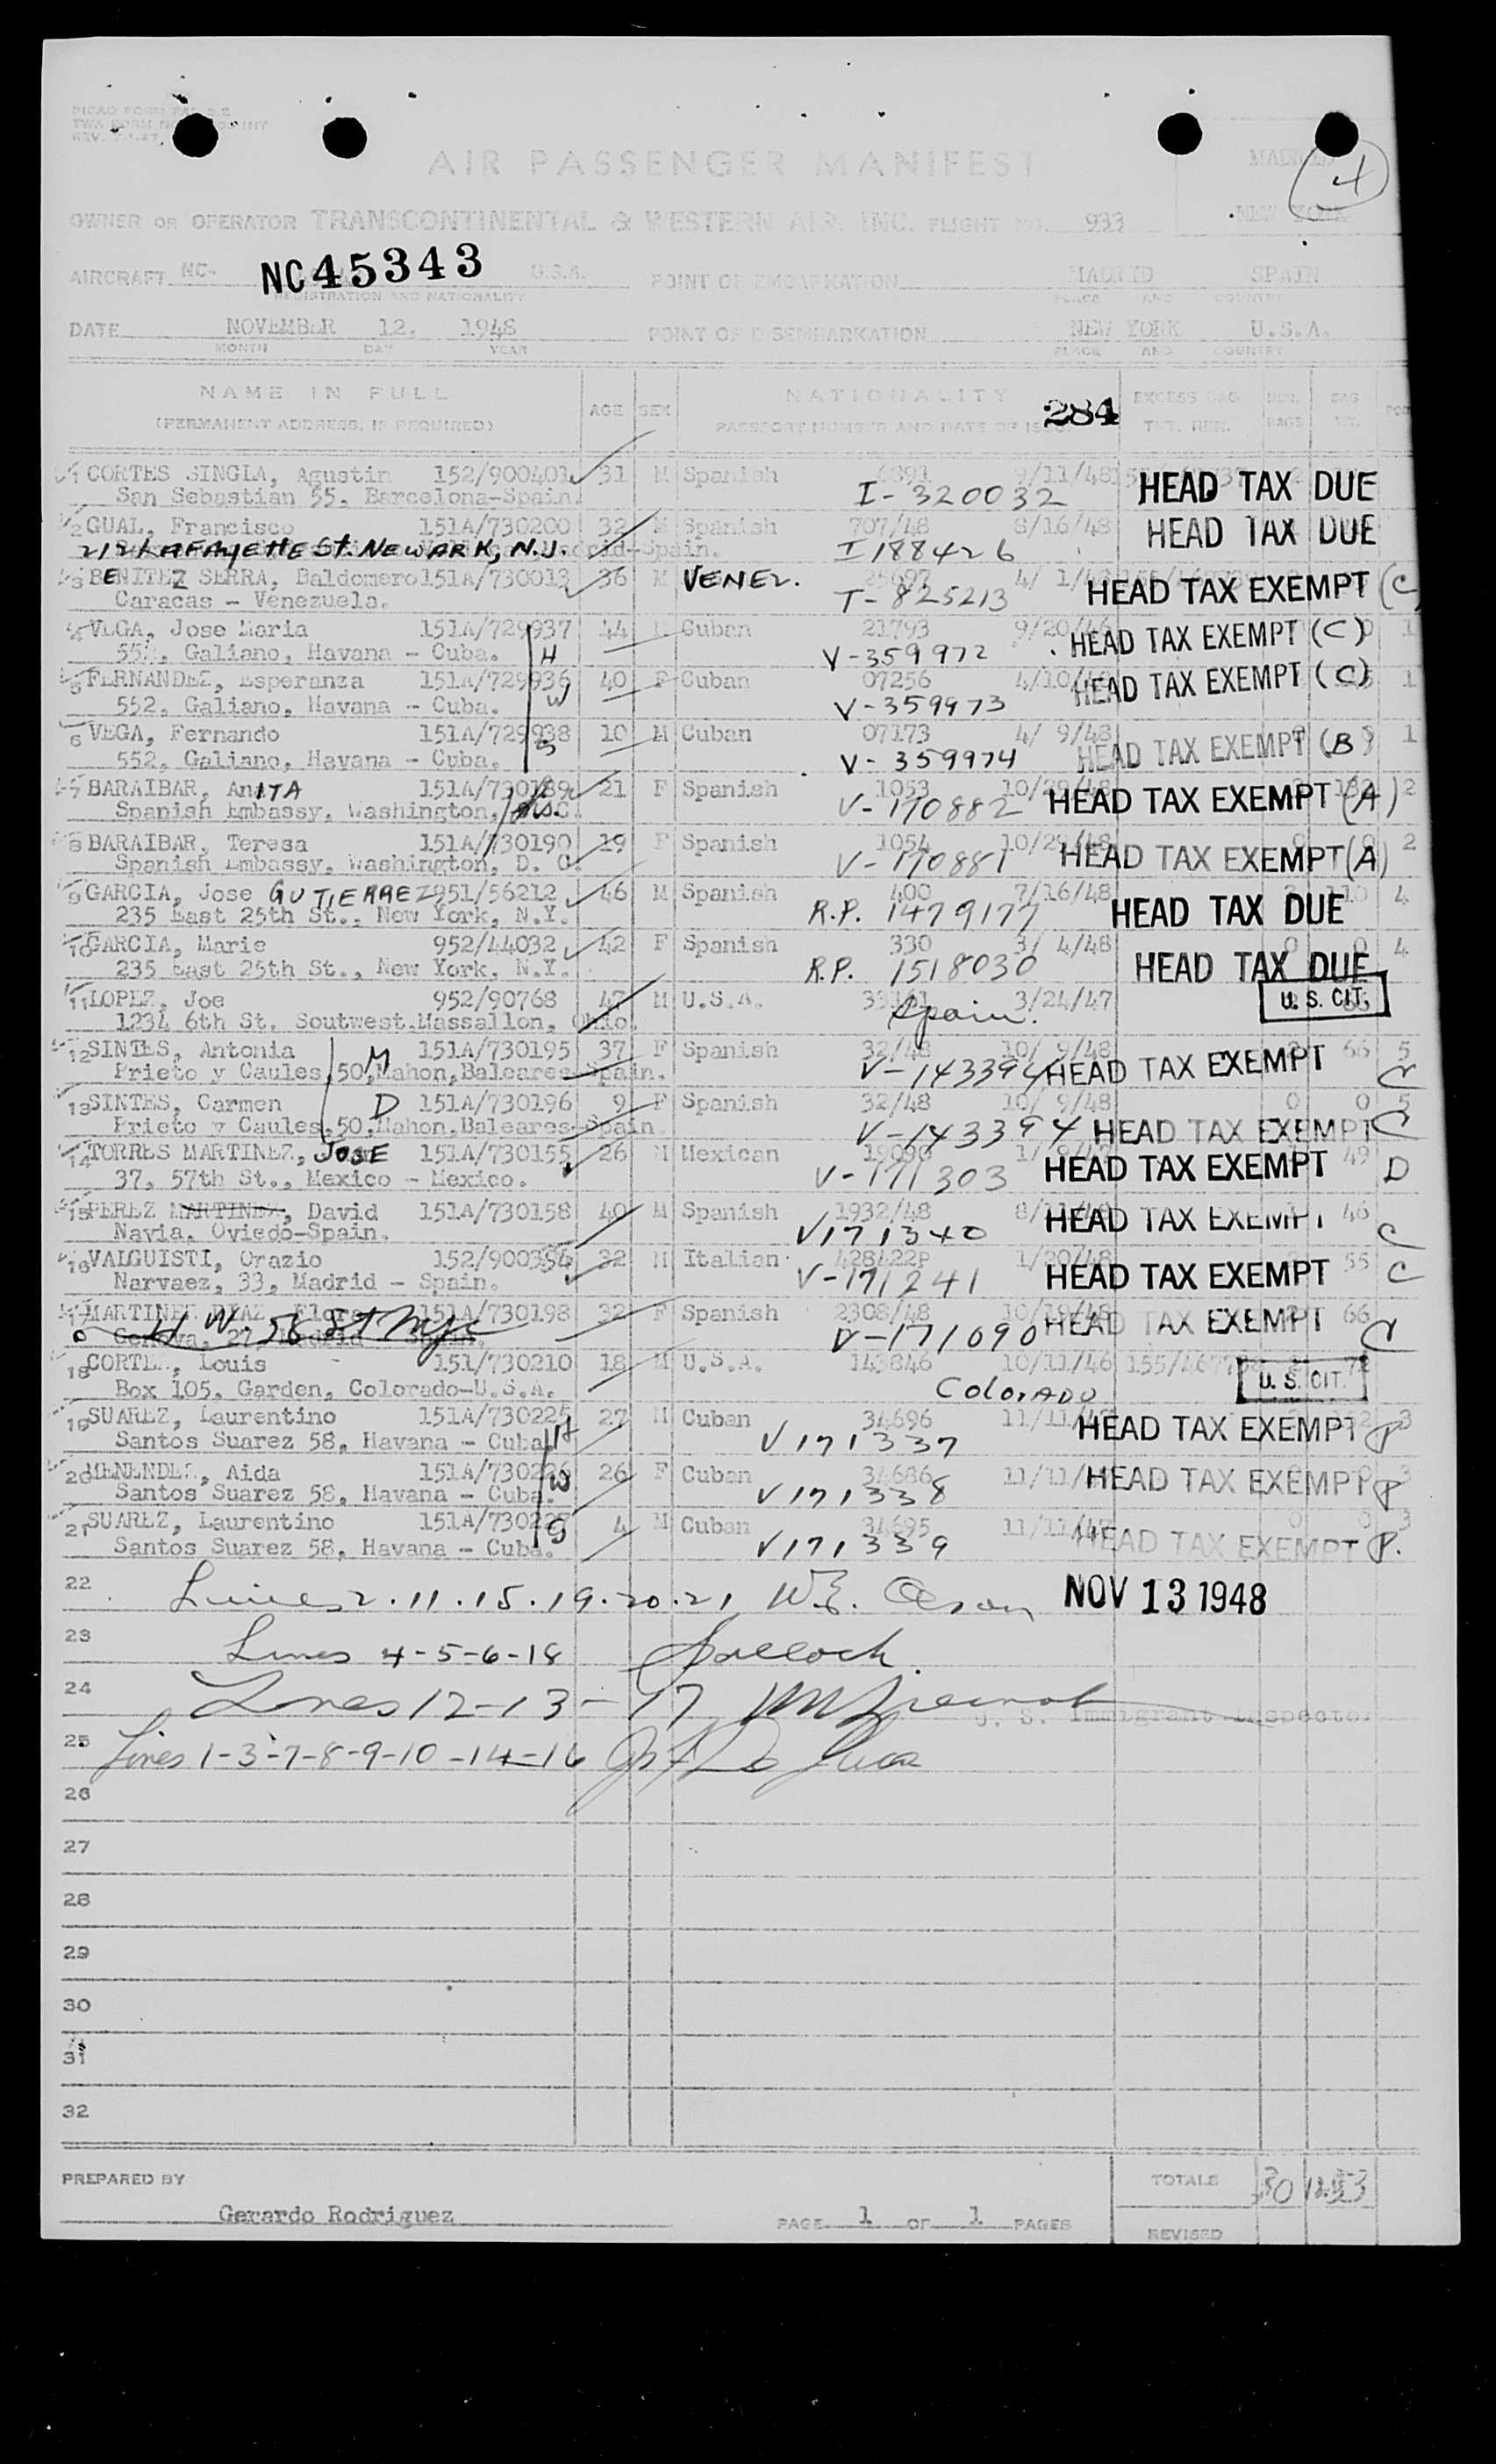 AIR PASSENGER MANIFEST
MADRID
4
OWNER OR OPERATOR TRANSCONTINENTAL & WESTERN AIR, INC. FLIGHT NO. 933
NEW YORK
AIRCRAFT NC- NC45343 U.S.A. POINT OF EMBARKATION MADRID SPAIN
REGISTRATION AND NATIONALITY PLACE AND COUNTRY
DATE NOVEMBER 12, 1948 POINT OF DISEMBARKATION NEW YORK U.S.A.
MONTH DAY YEAR PLACE AND COUNTRY
NAME IN FULL AGE SEX NATIONALITY 284 EXCESS BAG
(PERMANENT ADDRESS, IF REQUIRED) PASSPORT NUMBER AND DATE OF TKT. NBR.
1 CORTES SINGLA, Agustin 152/900401 31 M Spanish 6891 9/11/48 HEAD TAX DUE
San Sebastian 55, Barcelona-Spain. I-320032
2 GUAL, Francisco 151A/730200 32 M Spanish 707/48 8/16/48 HEAD TAX DUE
212 LAFAYETTE St. NEWARK, N.J. I188426
3 BENITEZ SERRA, Baldomero 151A/730013 36 M VENEZ. 4/ 1/ HEAD TAX EXEMPT (C)
Caracas - Venezuela. T-825213
4 VEGA, Jose Maria 151A/729937 44 M Cuban 21793 9/20/46 HEAD TAX EXEMPT (C) 1
552, Galiano, Havana - Cuba. H V-359972
5 FERNANDEZ, Esperanza 151A/729936 40 F Cuban 07256 4/10/ HEAD TAX EXEMPT (C) 1
552, Galiano, Havana - Cuba. W V-359973
6 VEGA, Fernando 151A/729938 10 M Cuban 07173 4/ 9/48 HEAD TAX EXEMPT (B) 1
552, Galiano, Havana - Cuba. S V-359974
7 BARAIBAR, AnITA 151A/730189 21 F Spanish 1053 10/29/48 HEAD TAX EXEMPT (A) 2
Spanish Embassy, Washington, V-170882
8 BARAIBAR, Teresa 151A/730190 19 F Spanish 1054 10/29/48 HEAD TAX EXEMPT (A) 2
Spanish Embassy, Washington, D. C. V-170881
9 GARCIA, Jose GUTIERREZ 951/56212 46 M Spanish 400 7/16/48 HEAD TAX DUE 110 4
235 East 25th St., New York, N.Y. R.P. 1479177
10 GARCIA, Marie 952/44032 42 F Spanish 330 3/ 4/48 HEAD TAX DUE 0 0 4
235 East 25th St., New York, N.Y. R.P. 1518030
11 LOPEZ, Joe 952/90768 47 M U.S.A. 3/24/47 U. S. CIT.
1234 6th St. Soutwest,Massallon, Ohio. Spain.
12 SINTES, Antonia 151A/730195 37 F Spanish 32/48 10/ 9/48 HEAD TAX EXEMPT 66 5
Prieto y Caules,50,Mahon,Baleares-Spain. M V-143394 C
13 SINTES, Carmen D 151A/730196 9 F Spanish 32/48 10/ 9/48 0 0 5
Prieto y Caules,50,Mahon,Baleares-Spain. V-143394 HEAD TAX EXEMPT C
14 TORRES MARTINEZ, JOSE 151A/730155 26 M Mexican HEAD TAX EXEMPT 49 D
37, 57th St., Mexico - Mexico. V-171303
15 PEREZ MARTINEZ, David 151A/730158 40 M Spanish 1932/48 HEAD TAX EXEMPT 46
Navia, Oviedo-Spain. V171340 C
16 VALGUISTI, Orazio 152/900394 32 M Italian 428422P 1/20/48 55
Narvaez, 33, Madrid - Spain. V-171241 HEAD TAX EXEMPT C
17 MARTINEZ DIAZ, Flora 151A/730198 32 F Spanish 2308/48 10/19/48 HEAD TAX EXEMPT 66
W 56 St NYC V-171090 C
18 CORTEZ, Louis 151/730210 18 M U.S.A. 143846 10/11/46 U. S. CIT. 72
Box 105, Garden, Colorado-U.S.A. ColorADO
19 SUAREZ, Laurentino 151A/730225 27 M Cuban 34696 11/11/ HEAD TAX EXEMPT P 3
Santos Suarez 58, Havana - Cuba. H V171337
20 MENENDEZ, Aida 151A/730226 26 F Cuban 34686 11/11/ HEAD TAX EXEMPT P 3
Santos Suarez 58, Havana - Cuba. W V171338
21 SUAREZ, Laurentino 151A/730227 4 M Cuban 34695 11/11/47 0 0 3
Santos Suarez 58, Havana - Cuba. S V171339 HEAD TAX EXEMPT P.
22 Lines 2.11.15.19.20.21 W.E. Olson NOV 13 1948
23 Lines 4-5-6-18
24 Lines 12-13-17 U. S. Immigrant Inspector
25 Lines 1-3-7-8-9-10-14-16
26
27
28
29
30
31
32
PREPARED BY TOTALS 30
Gerardo Rodriguez PAGE 1 OF 1 PAGES
REVISED